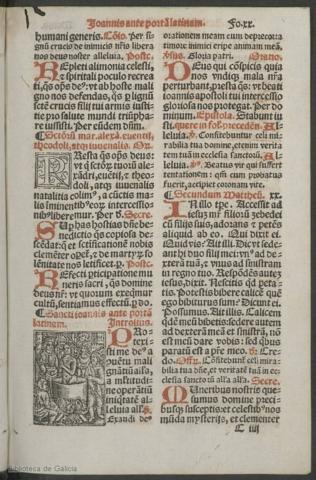 Joannis ante portã latinam. Fo.xx.
humani generis. Cõio. Per si-
gnũ crucis de inimicis nr̃is libera
nos deus noster alleluia. Postc.
REpleti alimonia celesti,
et spirituali poculo recrea
ti, q̃s op̃s
nos defendas, q̃s p ligni
per arma iusti-
tie pro salute mundi
uit. Per eũdem dñm.
alex. euenti,
theodoli, atq iuuenalis. Or.
PResta q̃s op̃s deus:
alexã-
dri, euẽtij, et theo-
doli, atq iuuenalis
natalitia colim, a cũctis ma
lis iminẽtib eorũ intercessio
nib liberemur. Per. Secre.
SUp has hostias dñe bñe
dictio copiosa de-
scẽdat: q̃ et sctificationẽ nobis
clemẽter opet, et de martyr
lẽnitate nos letificet. p. Postc.
REfecti pticipatione mu
neris sacri, q̃s domine
deus nr̃: vt quorum exeqmur
cultũ, sentiamus effectũ. p. do.
Sancti ioannis ante portã
latinam. Introitus.
PRo
texi-
sti me de a
quẽtu mali
gnãtiũ alla,
a mltitudi-
ne operãtiũ
iniqtatẽ al-
leluia alla.
Exaudi de
orationem meam cum deprecor: a
timore inimici eripe animam meã.
Gloria patri. Oratio.
DEus qui cõspicis quia
nos vndiq mala nr̃a
perturbant, presta q̃s: vt beati
ioannis apostoli tui intercessio
gloriosa nos protegat. Per do
minum. Epistola. Stabunt iu
sti, quere in fol. precedẽti. Al
leluia. Confitebuntur celi mi-
rabilia tua domine, etenim verita
tem tuã in ecclesia sanctorũ. Al
leluia. Beatus vir qui suffert
tentationem: qm̃ cum probatus
fuerit, accipiet coronam vite.
Secundum Mattheũ. xx.
IN illo tpe. Accessit ad
iesuz mr̃ filiorũ zebedei
cũ filijs suis, adorans et petẽs
aliquid ab eo. Qui dixit ei.
Quid vis? Ait illi. Dic vt sede-
ant hi duo filij mei: vn ad de-
xterã tuã, et vnus ad sinistram
in regno tuo. Respõdẽs autẽ
iesus, dixit. Nescitis qd peta-
tis. Potestis bibere calicẽ quẽ
ego bibiturus sum? Dicunt ei.
Possumus. Ait illis. Calicem
qdẽ meũ bibetis: sedere autem
ad dexterã meã et sinistrã, nõ
est meũ dare vobis: sed qbus
paratũ est a pr̃e meo. Cre-
do. Offr. Cõfitebunt celi mira-
bilia tua dñe, et veritatẽ tuã in ec-
clesia sanctorũ alla alla. Secre.
MUneribus nostris que-
sumus domine preci-
busq susceptis: et celestib nos
mũda mysterijs, et clementer
C iiij
Biblioteca de Galicia